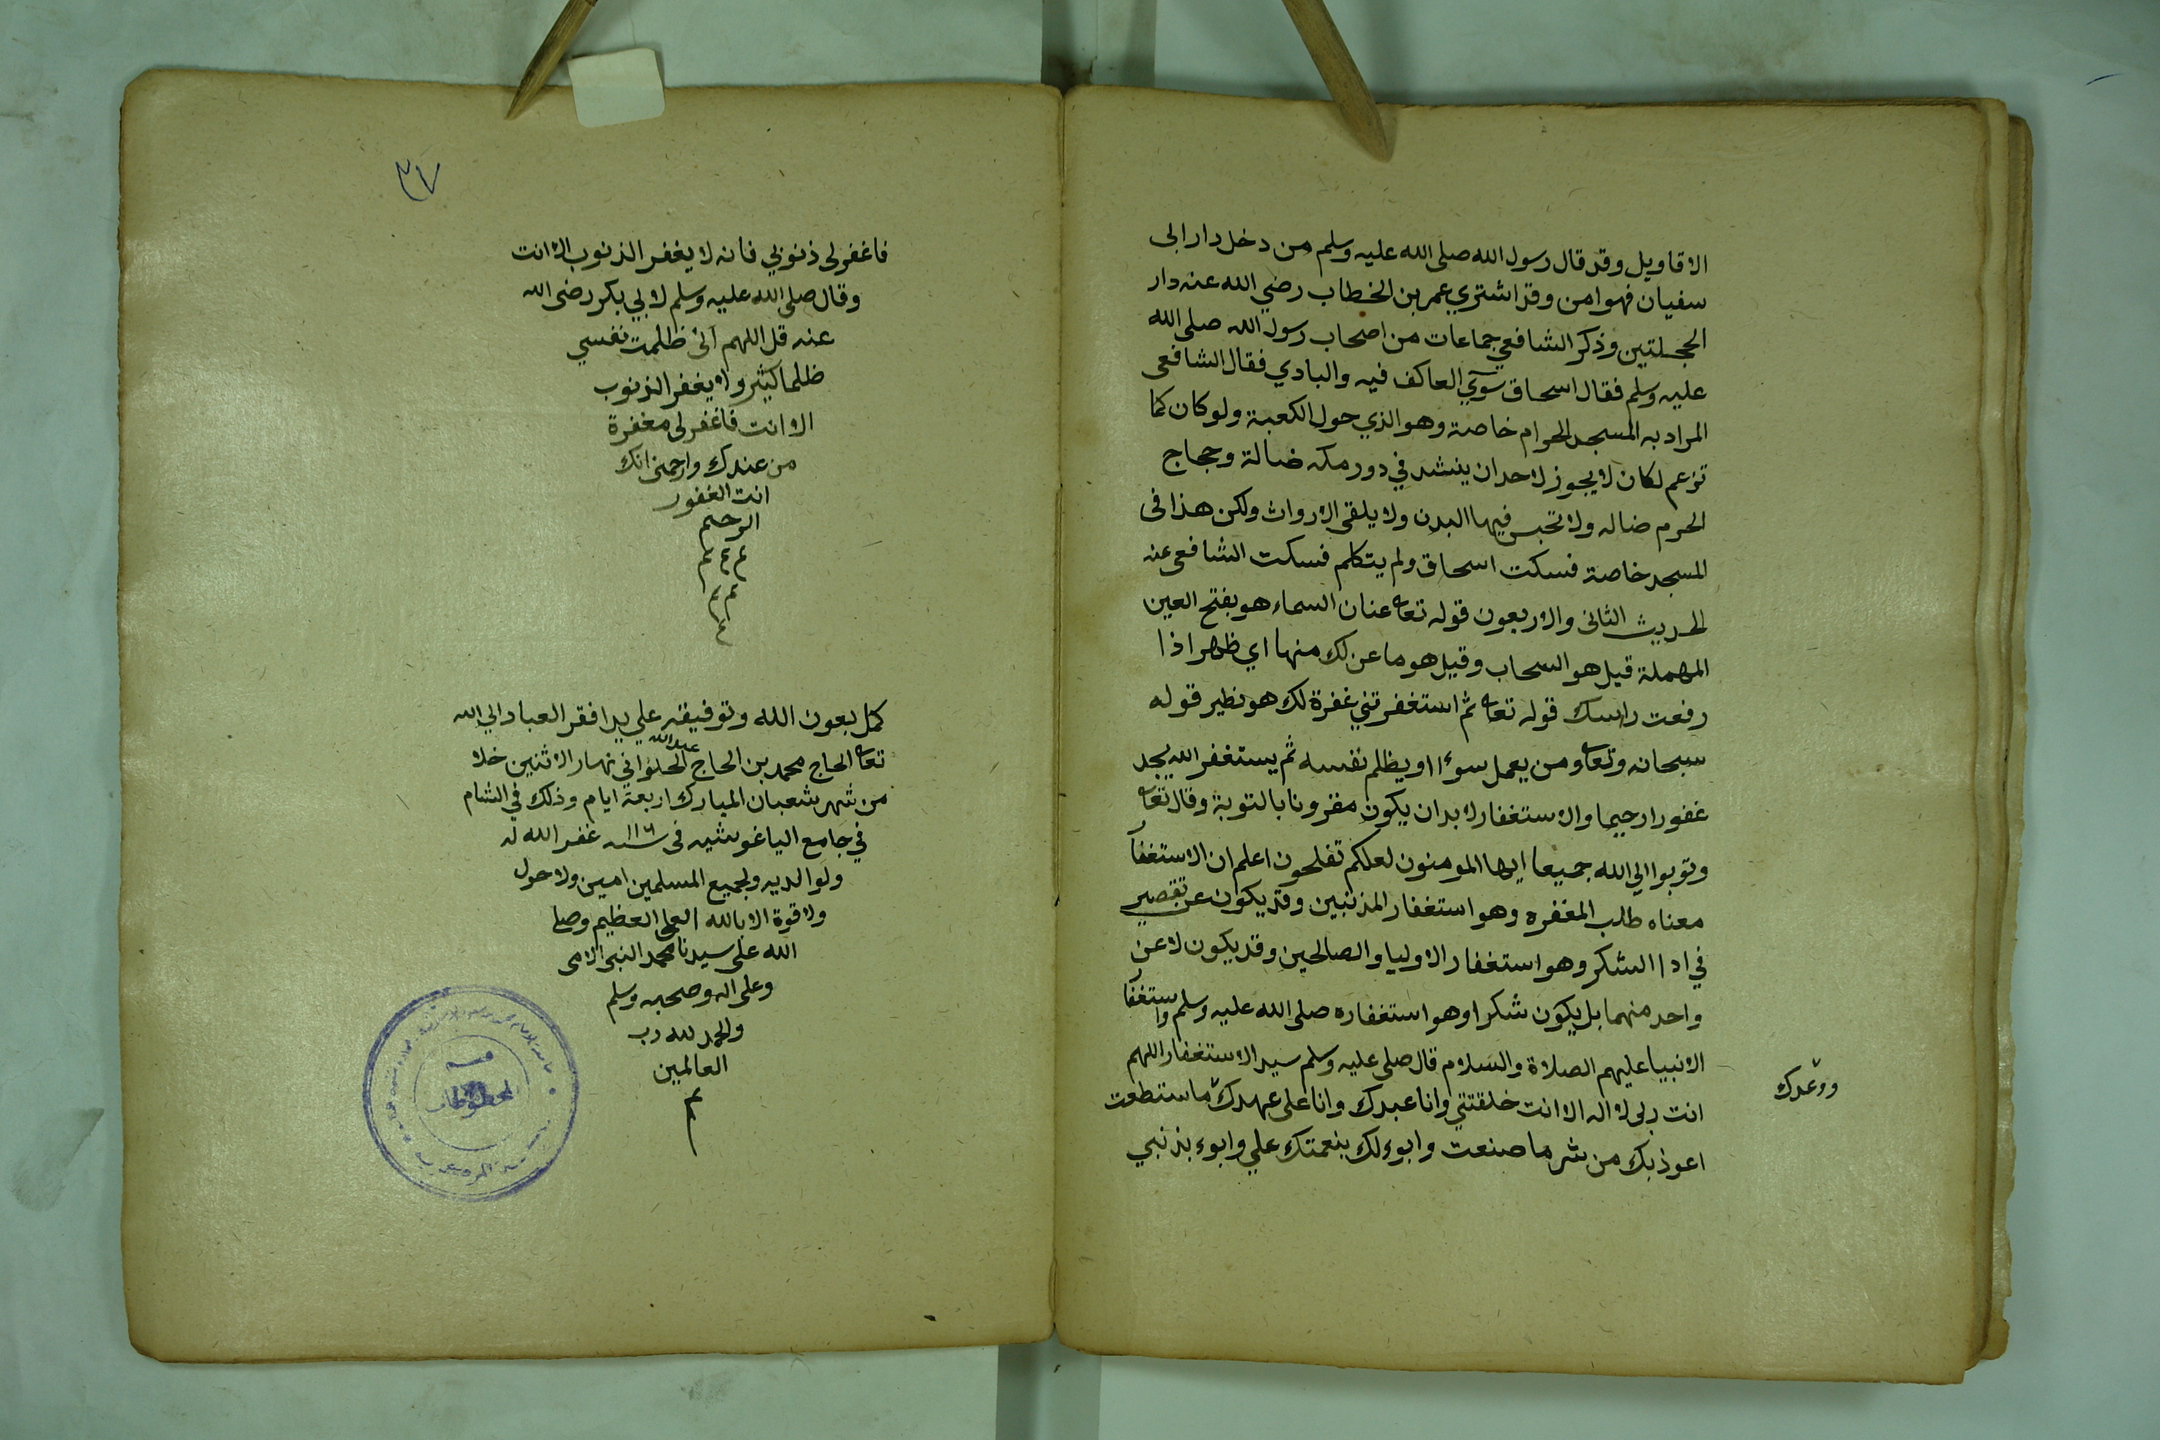 الاقاويل وقد قال رسول الله صلى الله عليه وسلم من دخل دار ابى
سفيان فهو امن وقد اشتري عمر بن الخطاب رضي الله عنه دار
الحجلتين وذكر الشافعي جماعات من اصحاب رسول الله صلى الله
عليه وسلم فقال اسحاق سوآي العاكف فيه والبادي فقال الشافعى
المراد به المسجد الحرام خاصة وهو الذي حول الكعبة ولو كان كما
تزعم لكان لا يجوز لاحد ان ينشد في دور مكه ضالة وحجاج
الحرم ضاله ولا تحبس فيها البدن ولا يلقى الارواث ولكن هذا فى
المسجد خاصة فسكت اسحاق ولم يتكلم فسكت الشافعى عنه
الحديث الثانى والاربعون قوله تعا عنان السماء هو بفتح العين
المهملة قيل هو السحاب وقيل هو ما عن لك منها اي ظهر اذا
رفعت راسك قوله تعا ثم استغفرتني غفرة لك هو نظير قوله
سبحانه وتعا ومن يعمل سوءا او يظلم نفسه ثم يستغفر الله يجد
غفورا رحيما والاستغفار لا بد ان يكون مقرونا بالتوبة وقال تعا
وتوبوا الي الله جميعا ايها المومنون لعلكم تفلحون اعلم ان الاستغفار
معناه طلب المغفره وهو استغفار المذنبين وقد يكون عن تقصير
في ادا الشكر وهو استغفار الاوليا والصالحين وقد يكون لا عن
واحد منهما بل يكون شكرا وهو استغفاره صلى الله عليه وسلم واستغفار
الانبيا عليهم الصلاة والسلام قال صلى عليه وسلم سيد الاستغفار اللهم
انت ربى لا اله الا انت خلقتني وانا عبدك وانا على عهدك ما ستطعت
ووعدك
اعوذ بك من شر ما صنعت وابوء لك بنعمتك علي وابوء بذنبي
٣٧
فاغفر لى ذنوبي فانه لا يغفر الذنوب الا انت
وقال صلى الله عليه وسلم لابي بكر رضى الله
عنه قل اللهم انى ظلمت نفسي
ظلما كثيرا ولا يغفر الذنوب
الا انت فاغفر لى مغفرة
من عندك وارحمنى انك
انت الغفور
الرحيم
م م م
م م
م
كمل بعون الله وتوفيقه علي يد افقر العباد الي الله
تعا الحاج محمد بن الحاج عبد الله الحلواني نهار الاثنين خلا
من شهر شعبان المبارك اربعة ايام وذلك في الشام
في جامع الياغوشيه فى سنه غفر الله له
ولوالديه ولجميع المسلمين امين ولا حول
ولا قوة الا بالله العلى العظيم وصلى
الله على سيدنا محمد النبى الامى
وعلى اله وصحبه وسلم
والحمد لله رب
العالمين
م
قسم
المخطوطات